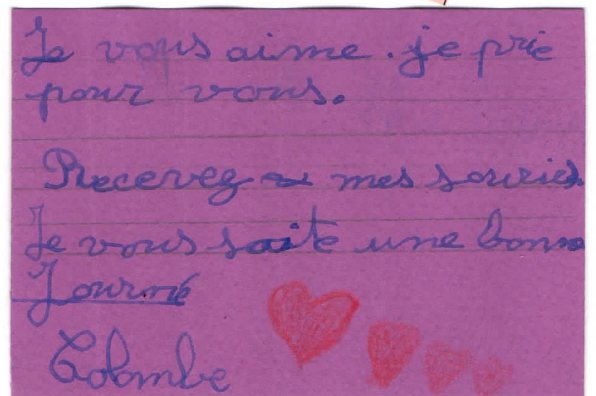 Je vous aime. je prie
pour vous.
Recevez mes souries.
Je vous saite une bonne
Journé
Colombe